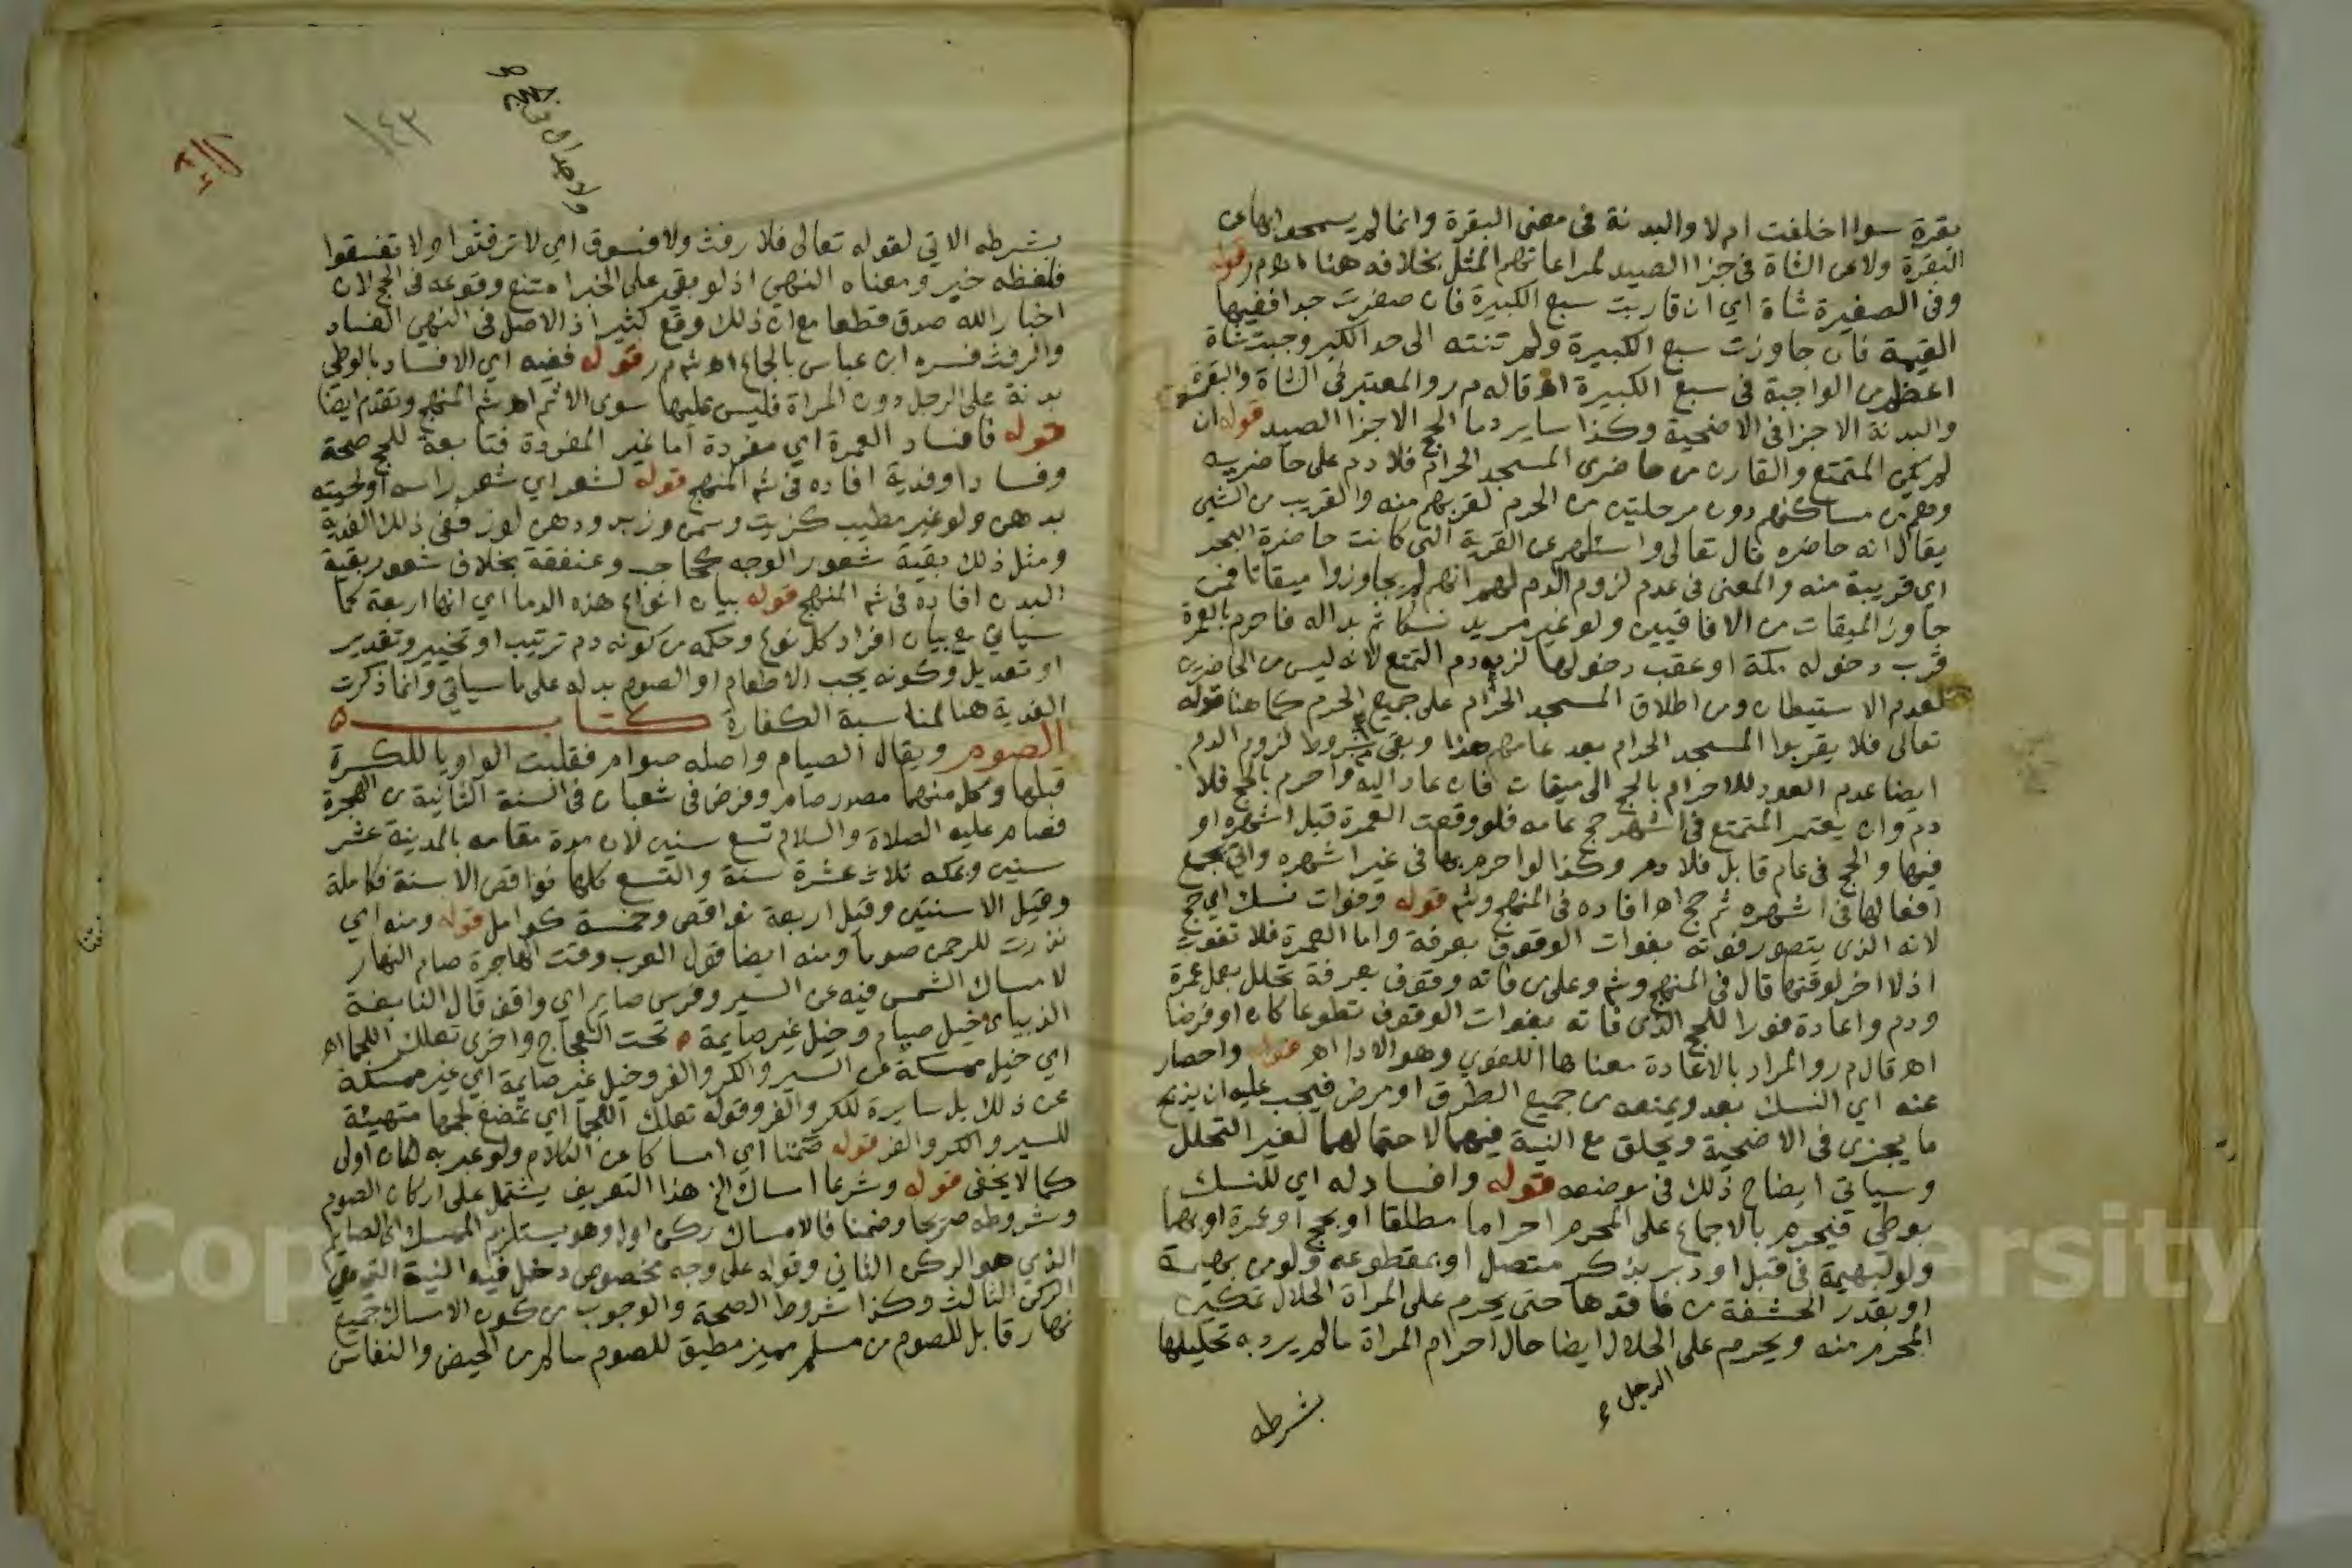 بقرة سوا اخلفت ام لا والبدنة في معنى البقرة وانما لم يسمحوا بها عن
البقرة ولا عن الشاة في جزا الصيد لمراعاتهم المثل بخلافه هنا ا ه م ر قوله
وفي الصغيرة شاة اي ان قاربت سبع الكبيرة فان صغرت جدا ففيها
القيمة فان جاوزت سبع الكبيرة ولم تنته الى حد الكبر وجبت شاة
اعظم من الواجبة في سبع الكبيرة اه قاله م ر والمعتبر في الشاة والبقرة
والبدنة الاجزا في الاضحية وكذا ساير دما الحج الا جزا الصيد قوله ان
لم يكن المتمتع والقارن من حاضري المسجد الحرام فلا دم على حاضريه
وهم من مساكنهم دون مرحلتين من الحرم لقربهم منه والقريب من الشي
يقال انه حاضره قال تعالى واسئلهم عن القرية التي كانت حاضرة البحر
اي قريبة منه والمعنى في عدم لزوم الدم لهم انهم لم يجاوزوا ميقاتا فمن
جاوز الميقات من الافاقيين ولو غير مريد نسكا ثم بدا له فاحرم بالعمرة
قرب دخوله مكة او عقب دخولها لزمه دم التمتع لانه ليس من الحاضرين
لعدم الاستيطان ومن اطلاق المسجد الحرام على جميع الحرم كما هنا قوله
تعالى فلا يقربوا المسجد الحرام بعد عامهم هذا وبقي من شروط لزوم الدم
ايضا عدم العود للاحرام بالحج الى ميقات فان عاد اليه واحرم بالحج فلا
دم وان يعتمر المتمتع في اشهر حج عامه فلو وقعت العمرة قبل اشهره او
فيها والحج في عام قابل فلا دم وكذا لو احرم بها في غير اشهره واتى بجميع
افعالها في اشهره ثم حج اه افاده في المنهج وش قوله وفوات نسك اي حج
لانه الذي يتصور فوته بفوات الوقوف بعرفة واما العمرة فلا تفوت
اذ لا اخر لوقتها قال في المنهج وش وعلى من فاته وقوف بعرفة تحلل بعمل عمرة
ودم واعادة فورا للحج الذي فاته بفوات الوقوف تطوعا كان او فرضا
اه قال م ر والمراد بالاعادة معناها اللغوي وهو الادا اه قوله واحصار
عنه اي النسك بعدو يمنعه من جميع الطرق او مرض فيجب عليه ان يذبح
ما يجزي في الاضحية ويحلق مع النية فيهما لاحتمالهما لغير التحلل
وسياتي ايضاح ذلك في موضعه قوله وافساد له اي للنسك
بوطي فيحرم بالاجماع على المحرم احراما مطلقا او بحج او عمرة او بهما
ولو لبهيمة في قبل او دبر بذكر متصل او بمقطوعه ولو من بهيمة
او بقدر الحشفة من فاقدها حتى يحرم على المراة الحلال تمكين
المحرم منه ويحرم على الحلال ايضا حال احرام المراة ما لم يرد به تحليلها
الرجل
بشرطه
ولا جدال في الحج
١٤٣
بشرطه الاتي لقوله تعالى فلا رفث ولا فسوق اي لا ترفثوا ولا تفسقوا
فلفظه خبر ومعناه النهي اذ لو بقي على الخبر امتنع وقوعه في الحج لان
اخبار الله صدق قطعا مع ان ذلك وقع كثيرا اذ الاصل في النهي الفساد
والرفث فسره ابن عباس بالجماع اه ش م ر قوله ففيه اي الافساد بالوطي
بدنة على الرجل دون المراة فليس عليها سوى الاثم اه ش المنهج وتقدم ايضا
قوله فافساد العمرة اي مفردة اما غير المفردة فتابعة للحج صحة
وفسادا وفدية افاده في ش المنهج قوله لشعر اي شعر راسه او لحيته
بدهن ولو غير مطيب كزيت وسمن وزبد ودهن لوز ففي ذلك الفدية
ومثل ذلك بقية شعور الوجه كحاجب وعنفقة بخلاف شعور بقية
البدن افاده في ش المنهج قوله بيان انواع هذه الدما اي انها اربعة كما
سياتي مع بيان افراد كل نوع وحكمه من كونه دم ترتيب او تخيير وتقدير
او تعديل وكونه يجب الاطعام او الصوم بدله على ما سياتي وانما ذكرت
الفدية هنا لمناسبة الكفارة كتاب
الصوم ويقال الصيام واصله صوام فقلبت الواو يا للكسرة
قبلها وكل منهما مصدر صام وفرض في شعبان في السنة الثانية من الهجرة
فصام عليه الصلاة والسلام تسع سنين لان مدة مقامه بالمدينة عشر
سنين وبمكة ثلاث عشرة سنة والتسع كلها نواقص الا سنة فكاملة
وقيل الا سنتين وقيل اربعة نواقص وخمسة كوامل قوله ومنه اي
نذرت للرحمن صوما ومنه ايضا قول العرب وقت الهاجرة صام النهار
لامساك الشمس فيه عن السير وفرس صايم اي واقف قال النابغة
الذبياني خيل صيام وخيل غير صايمة ه تحت العجاج واخرى تعلك اللجما اه
اي خيل ممسكة عن السير والكر والفر وخيل غير صايمة اي غير ممسكة
عن ذلك بل سايرة للكر والفر وقوله تعلك اللجما اي تمضغ لجمها متهيئة
للسير والكر والفر قوله صمتا اي امساكا عن الكلام ولو عبر به لكان اولى
كما لا يخفى قوله وشرعا امساك الخ هذا التعريف يشتمل على اركان الصوم
وشروطه صريحا وضمنا فالامساك ركن اول وهو يستلزم الممسك اي الصايم
الذي هو الركن الثاني وقوله على وجه مخصوص دخل فيه النية التي هي
الركن الثالث وكذا شروط الصحة والوجوب من كون الامساك جميع
نهار قابل للصوم من مسلم مميز مطيق للصوم سالم من الحيض والنفاس